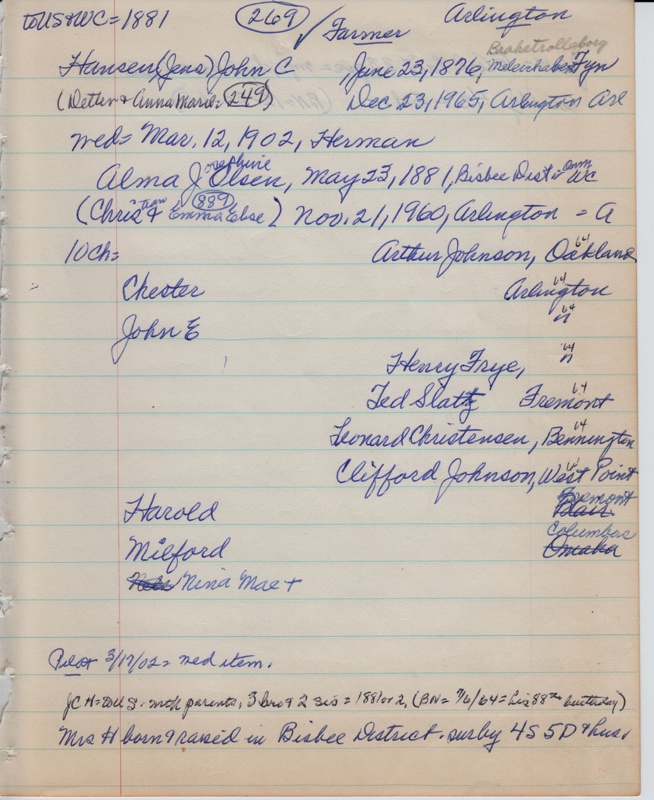 to US & WC = 1881 269 ✓ Farmer Arlington
Brahetrolleborg
Hansen (Jens) John C , June 23, 1876, Fyn
(Detlev & Anna Marie = 249) Dec 23, 1965, Arlington Arl
wed = Mar. 12, 1902, Herman
Alma Josephine Olsen, May 23, 1881, Bisbee Dist in WC
(Christian & Emma Else 889) Nov. 21, 1960, Arlington = A
10 Ch =
Arthur Johnson, Oakland 64
Chester Arlington 64
John E " 64
Henry Frye, " 64
Ted Slatz Fremont 64
Leonard Christensen, Bennington 64
Clifford Johnson, West Point
Harold Blair Fremont
Milford Omaha Columbus
Nina Mae +
Pilot 3/19/02 = wed item.
JCH = to U.S. with parents, 3 bro & 2 sis = 1881 or 2, (BN = 7/6/64 = his 88th birthday)
Mrs H born & raised in Bisbee District. sur by 4S 5D & hus.